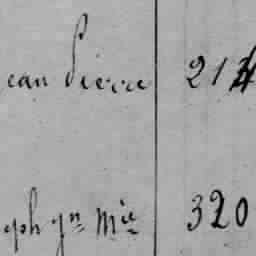 ean Pierre 214
eph gn Mie 320